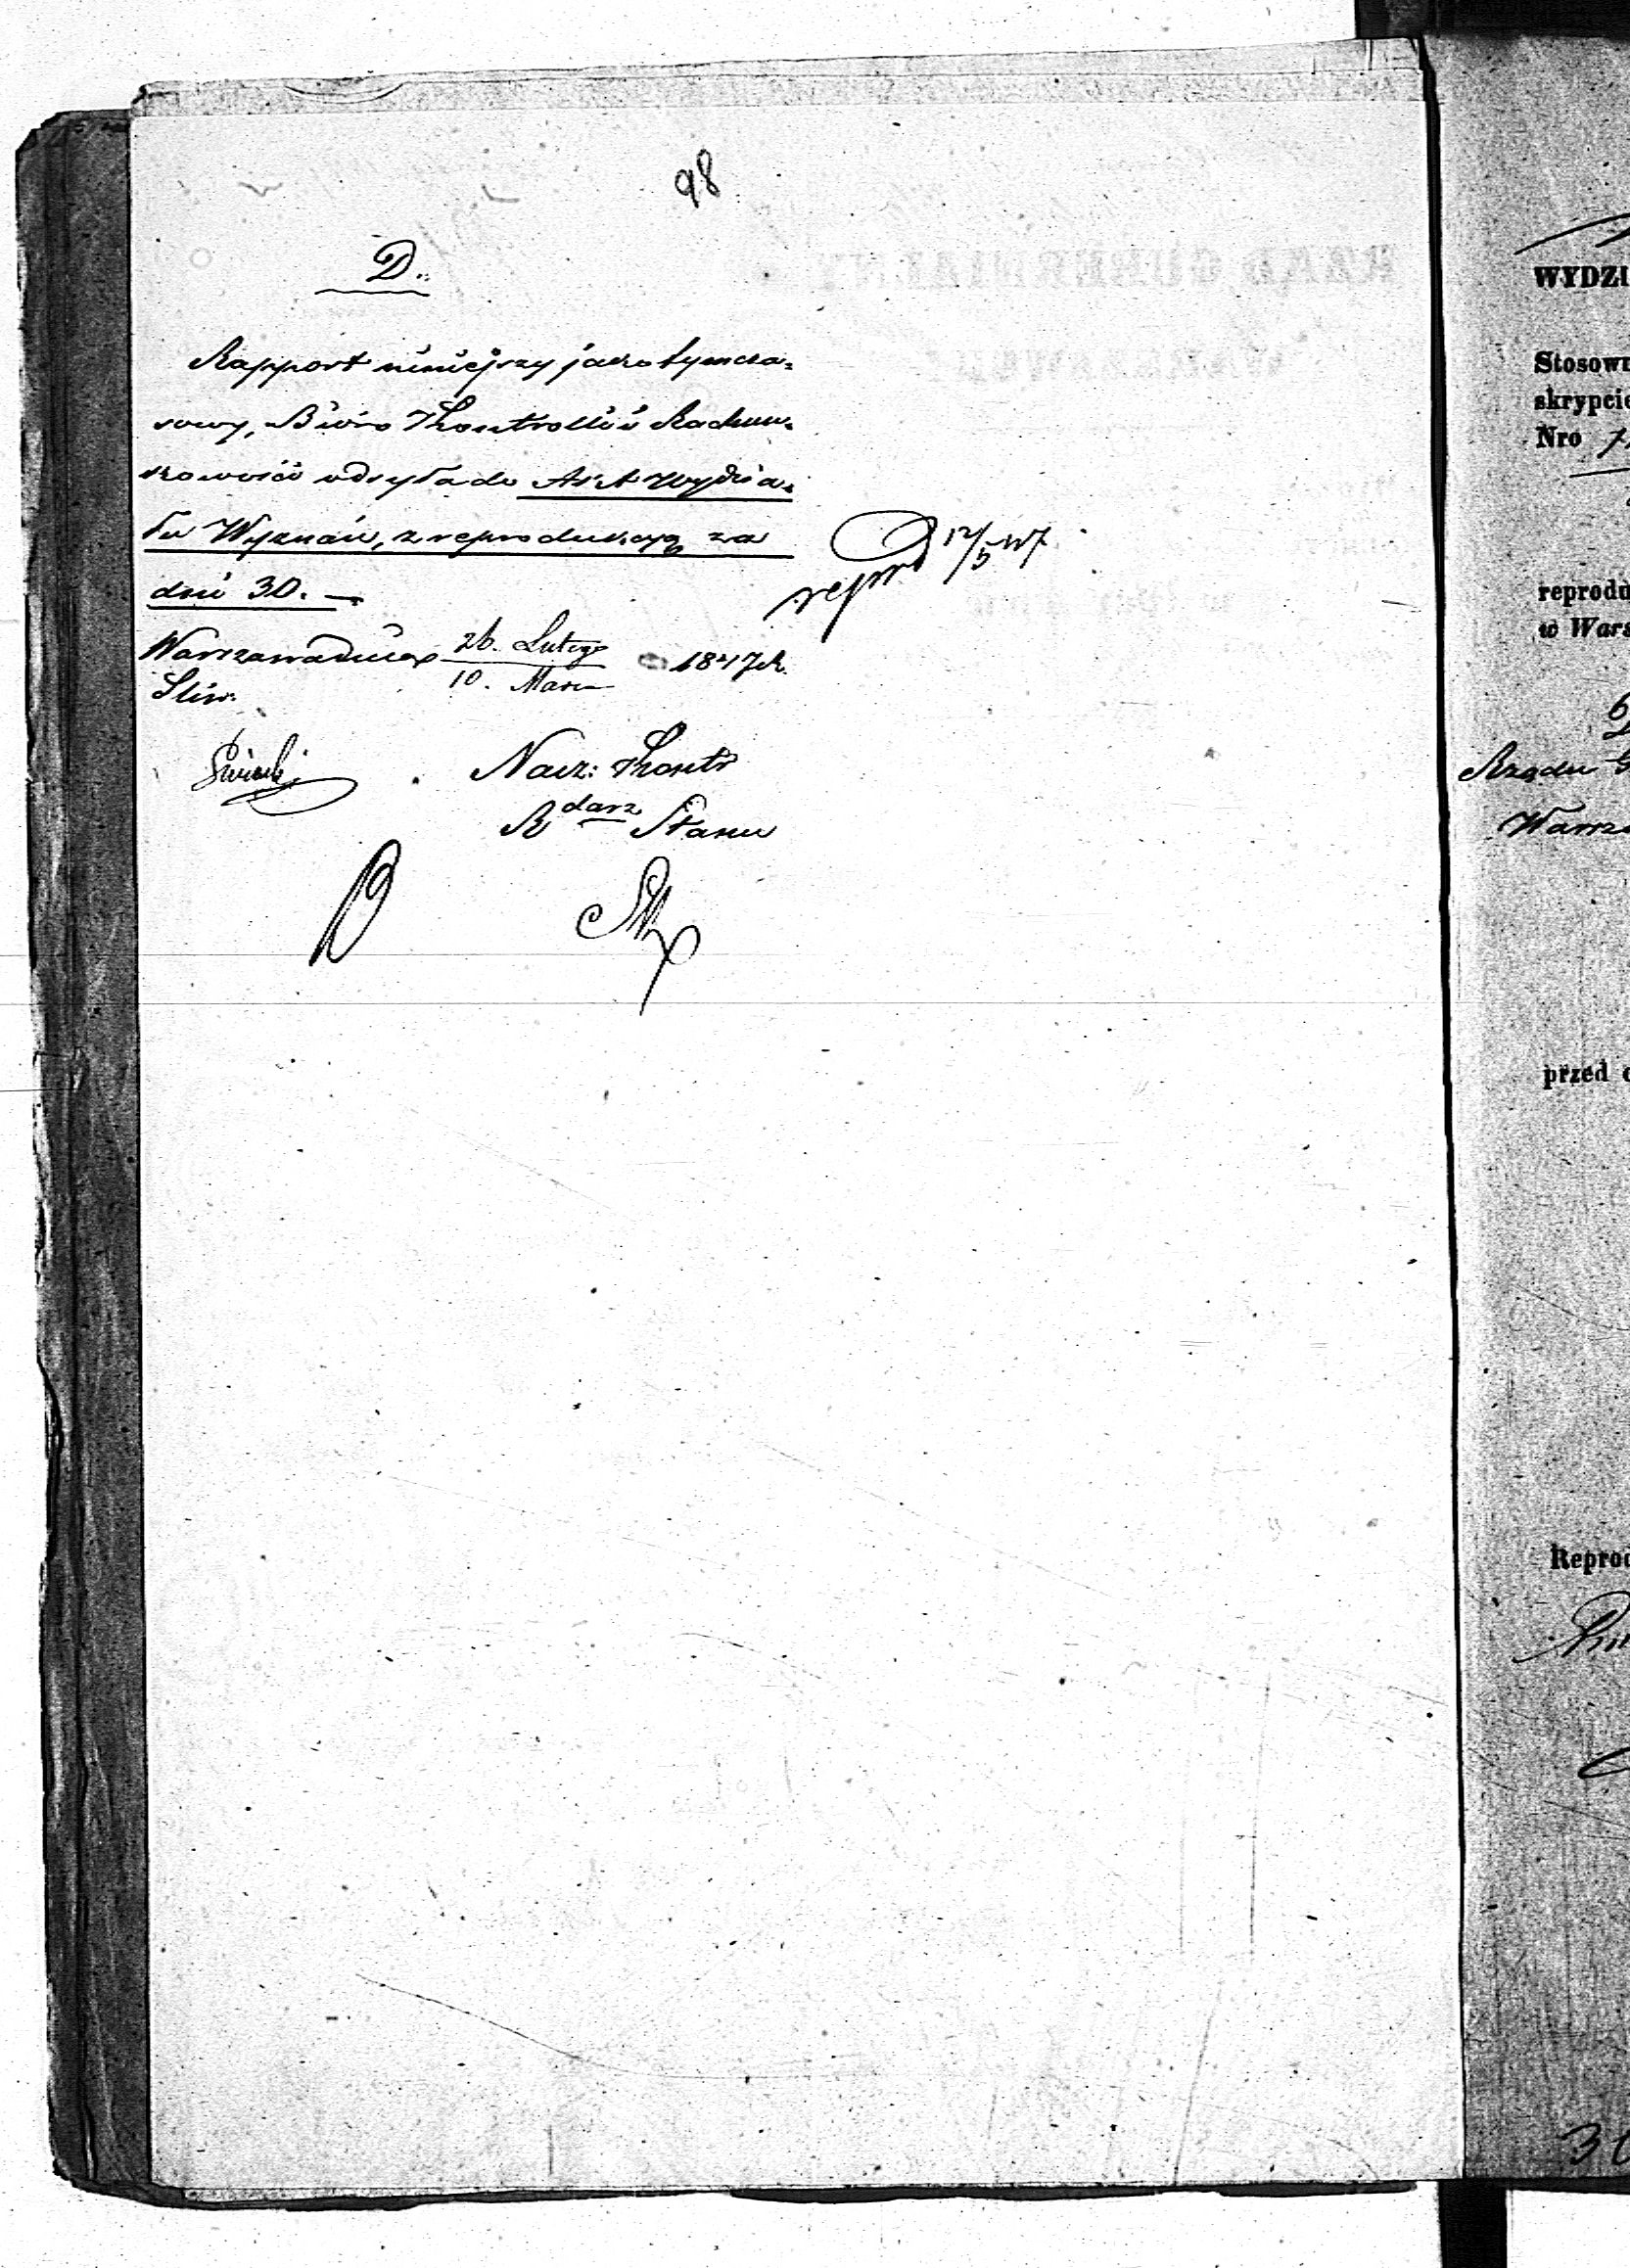 98
D.
Rapport niniejszy jako tymcza=
sowy, Biuro Kontrolli i Rachun=
kowości odsyła do Akt Wydzia=
łu Wyznań, z reprodukcyą za
dni 30. —
Warszawa dnia 26. Lutego 1847 R.
10. Marca
repro 12/5 47
Nacz: Kontr
R darz Stanu
WYDZI
Stosown
skrypcie
Nro
reprodu
w Wars
Rządu G
Warsz
przed
Reprod
30